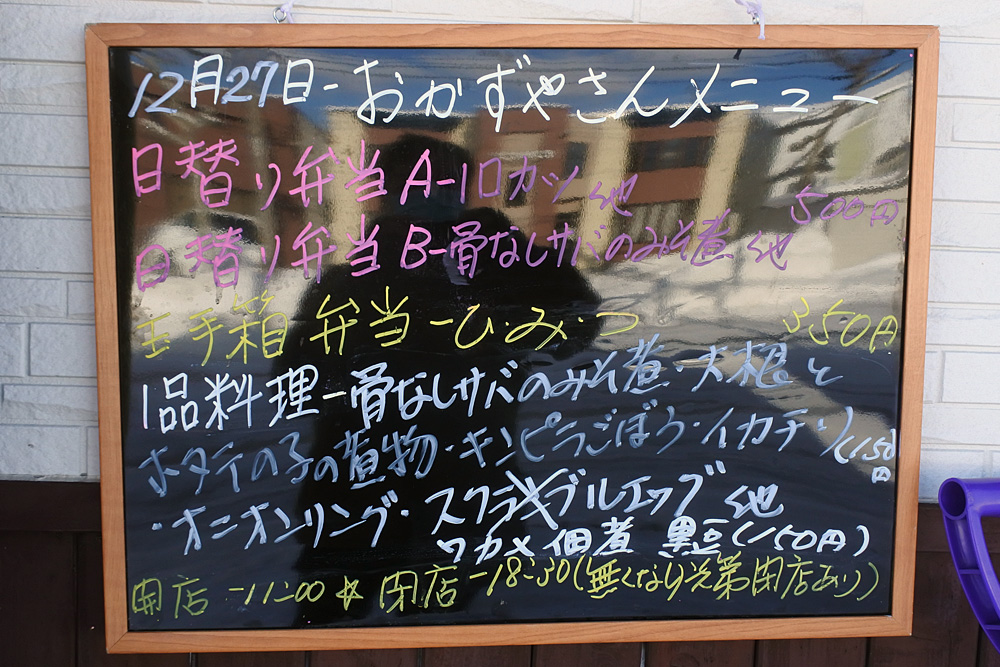 12月27日-おかずやさんメニュー
日替り弁当A-1口カツ他 500円
日替り弁当B-骨なしサバのみそ煮他
玉手箱弁当-ひ・み・つ 350円
1品料理-骨なしサバのみそ煮・大根と
ホタテの子の煮物・キンピラごぼう・イカチヂ(150円
・オニオンリング・スクランブルエッグ他
ワカメ佃煮 黒豆(150円)
開店-11:00☆閉店-18:30(無くなり次第閉店あり)